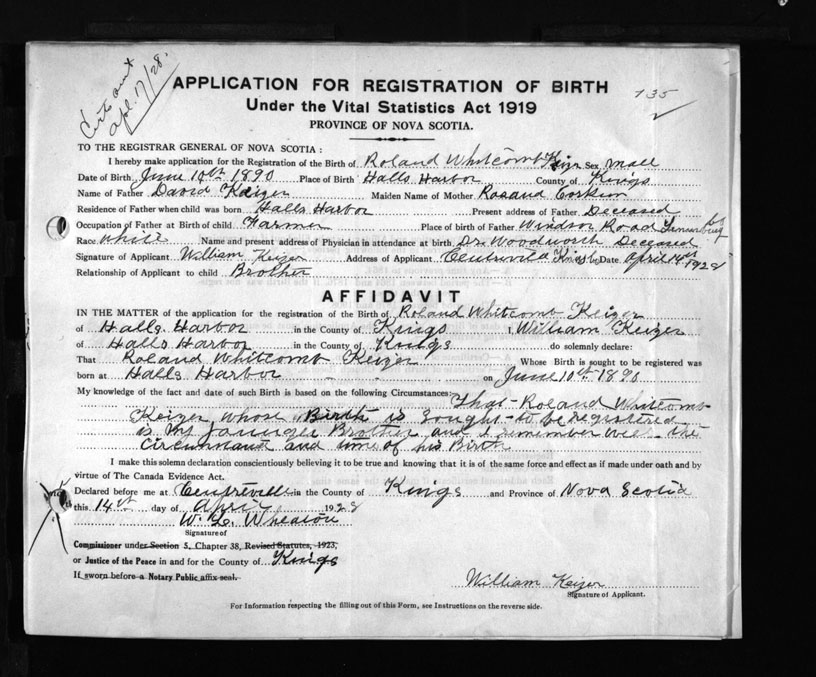 Certs sent
Apl. 17/28.
135
APPLICATION FOR REGISTRATION OF BIRTH
Under the Vital Statistics Act 1919
PROVINCE OF NOVA SCOTIA.
TO THE REGISTRAR GENERAL OF NOVA SCOTIA :
I hereby make application for the Registration of the Birth of Roland Whitcomb Keizer Sex Male
Date of Birth June 10th 1890 Place of Birth Halls Harbor County of Kings
Name of Father David Keizer Maiden Name of Mother
Residence of Father when child was born Halls Harbor Present address of Father Deceased
Occupation of Father at Birth of child Farmer Place of birth of Father Windsor Road Lunenburg Co
Race White Name and present address of Physician in attendance at birth Dr. Woodworth Deceased
Signature of Applicant William Keizer Address of Applicant Centreville Kings Co Date April 14th 1928
Relationship of Applicant to child Brother
AFFIDAVIT
IN THE MATTER of the application for the registration of the Birth of Roland Whitcomb Keizer
of Halls Harbor in the County of Kings I, William Keizer
of Halls Harbor in the County of Kings do solemnly declare:
That Roland Whitcomb Keizer Whose Birth is sought to be registered was
born at Halls Harbor on June 10th 1890
My knowledge of the fact and date of such Birth is based on the following Circumstances That Roland Whitcomb
Keizer whose Birth is sought to be registered
is my younger Brother and I remember well the
circumstance and time of his Birth
I make this solemn declaration conscientiously believing it to be true and knowing that it is of the same force and effect as if made under oath and by
virtue of The Canada Evidence Act.
Declared before me at Centreville in the County of Kings and Province of Nova Scotia
this 14th day of April 1928
W. L. Wheaton
Signature of
Commissioner under Section 5, Chapter 38, Revised Statutes, 1923,
or Justice of the Peace in and for the County of Kings
If sworn before a Notary Public affix seal.
William Keizer
Signature of Applicant.
For Information respecting the filling out of this Form, see Instructions on the reverse side.